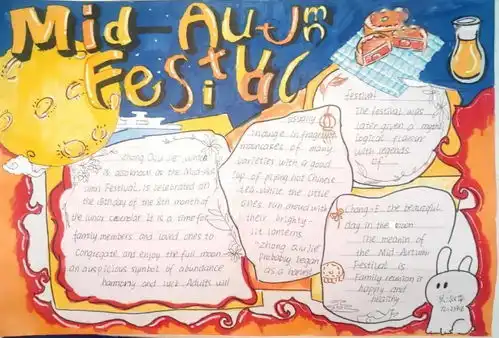 Mid-Autumn
Festival
Zhong Qiu Jie, which
is also known as the Mid-Au
umn Festival, is celebrated on
the 15th day of the 8th month of
the lunar calendar. It is a time for
family members and loved ones to
Congregate and enjoy the full moon
an auspicious symbol of abundance
harmony and luck. Adults will
usually
indulge in fragrant
mooncakes of many
varieties with a good
cup of piping hot Chinese
tea while the little
ones run around with
their brightly-
lit lanterns.
"Zhong Qiu Jie"
probably began
as a harvest
festival
The festival was
later given a myth
logical flavour
with legends
of
Chang-E the beautiful
day in the moon
The meanin of
the Mid-Autumn
Festival is
family reunion is
happy and
healthy